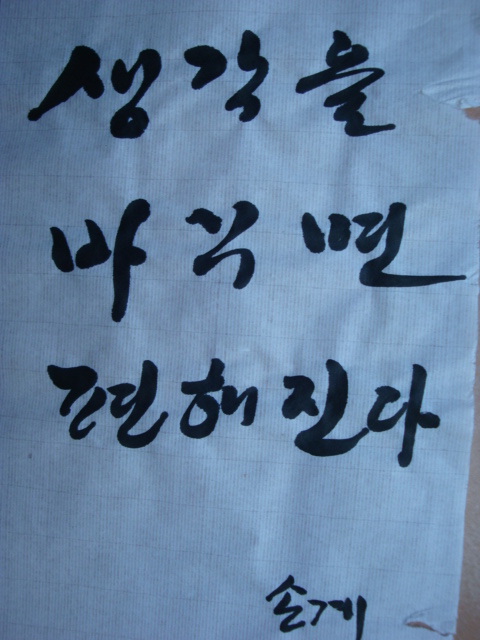 생각을
바꾸면
편해진다
손게